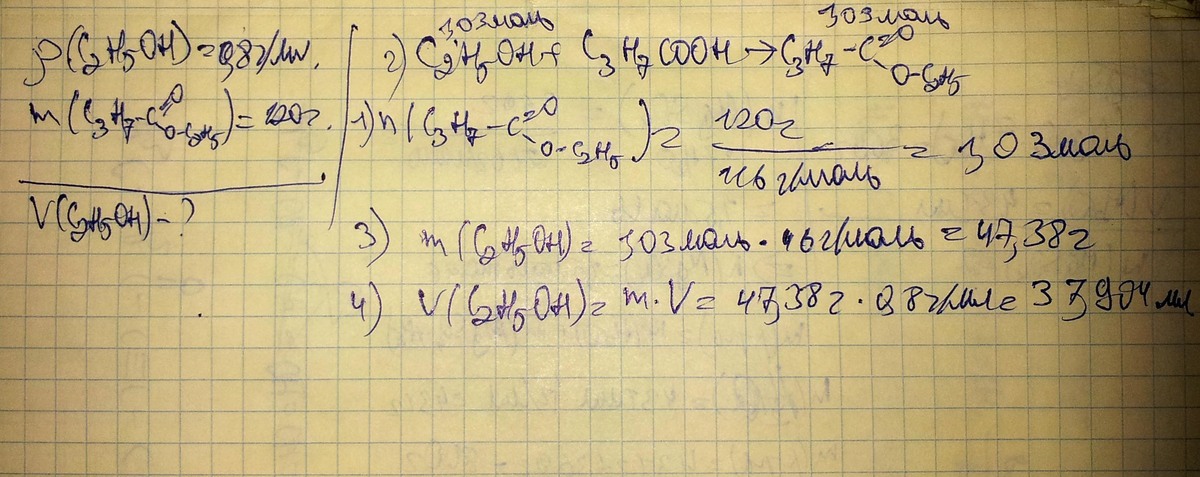 ρ(C₂H₅OH) = 0,8 г/мл.
m(C₃H₇-C=O O-C₂H₅) = 120 г.
V(C₂H₅OH) - ?
1,03 моль 1,03 моль
2) C₂H₅OH + C₃H₇COOH → C₃H₇-C=O O-C₂H₅
1) n(C₃H₇-C=O O-C₂H₅) = 120 г / 116 г/моль = 1,03 моль
3) m(C₂H₅OH) = 1,03 моль · 46 г/моль = 47,38 г
4) V(C₂H₅OH) = m · V = 47,38 г · 0,8 г/мл = 37,904 мл